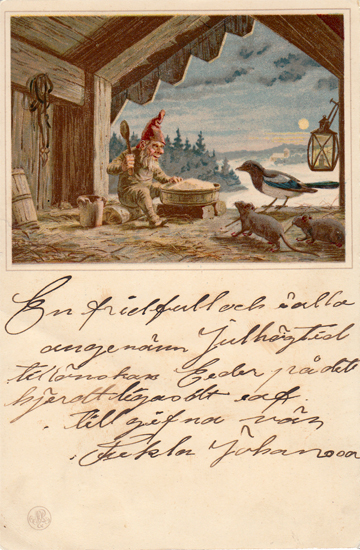 En fridfull och i alla
angenäm Julhögtid
tillönskas Eeder på det
hjerttligastt af
tillgifna vän
Tekla Johanson